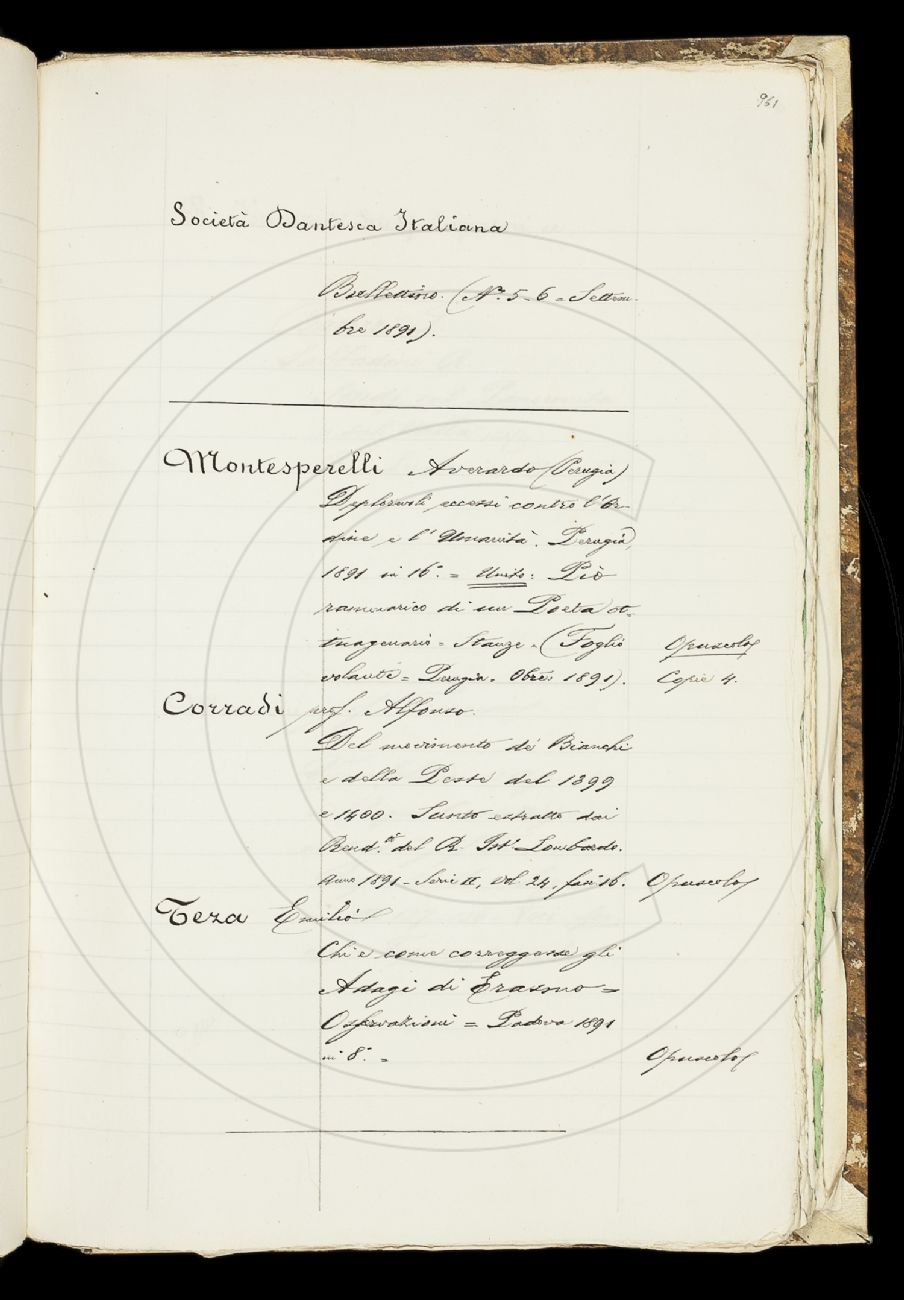 961
Società Dantesca Italiana
Bullettino. (Nⁱ 5-6 = Settem-
bre 1891).
Montesperelli Averardo (Perugia)
Deplorevoli eccessi contro l'Or-
dine e l'Umanità. Perugia,
1891 in 16°. = Unito: Pio
rammarico di un Poeta ot-
tuagenario = Stanze. (Foglio Opuscolo
volante = Perugia. Obre 1891). Copie 4.
Corradi prof. Alfonso.
Del movimento dei Bianchi
e della Peste del 1399
e 1400. Sunto estratto dai
Rend.ti del R. Ist° Lombardo.
Anno 1891 - Serie II, vol 24, fasc 16. Opuscolo
Teza Emilio
Chi e come correggesse gli
Adagi di Erasmo =
Osservazioni = Padova 1891
in 8°. = Opuscolo